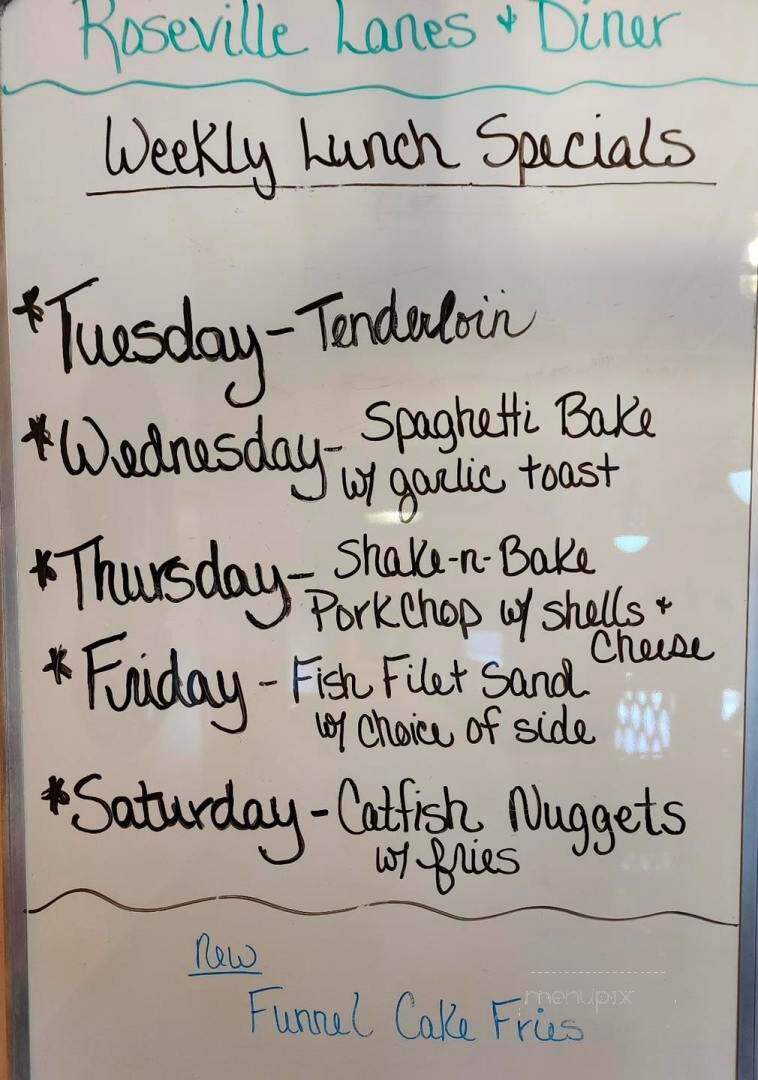 Roseville Lanes + Diner
Weekly Lunch Specials
*Tuesday - Tenderloin
*Wednesday - Spaghetti Bake
w/ garlic toast
*Thursday - Shake-n-Bake
Pork Chop w/ shells +
Cheese
*Friday - Fish Filet Sand
w/ choice of side
*Saturday - Catfish Nuggets
w/ fries
New
Funnel Cake Fries
menupix